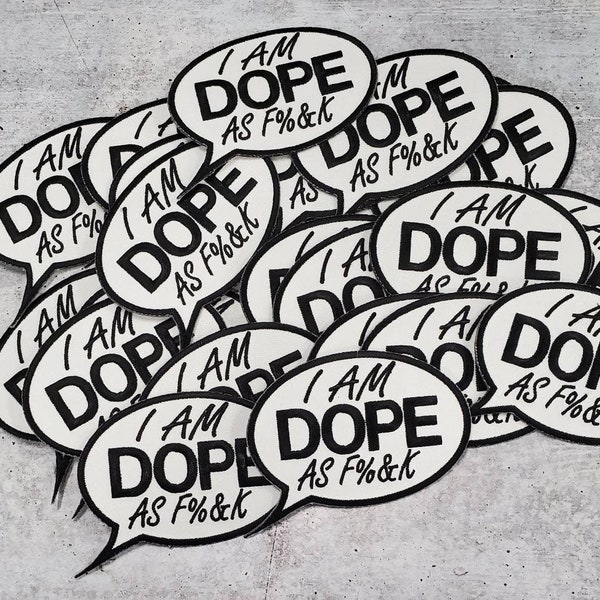 I AM
DOPE
AS F%&K
AM
DOPE
AS F%&K
I AM
I AM
DOPE
AS F%&K
I AM
DOPE
AS F%&K
I AM
I AM
DOPE
I AM
I AM
I AM
DOPE
AS F%&K
I AM
DOPE
AS F%&K
AS F%&K